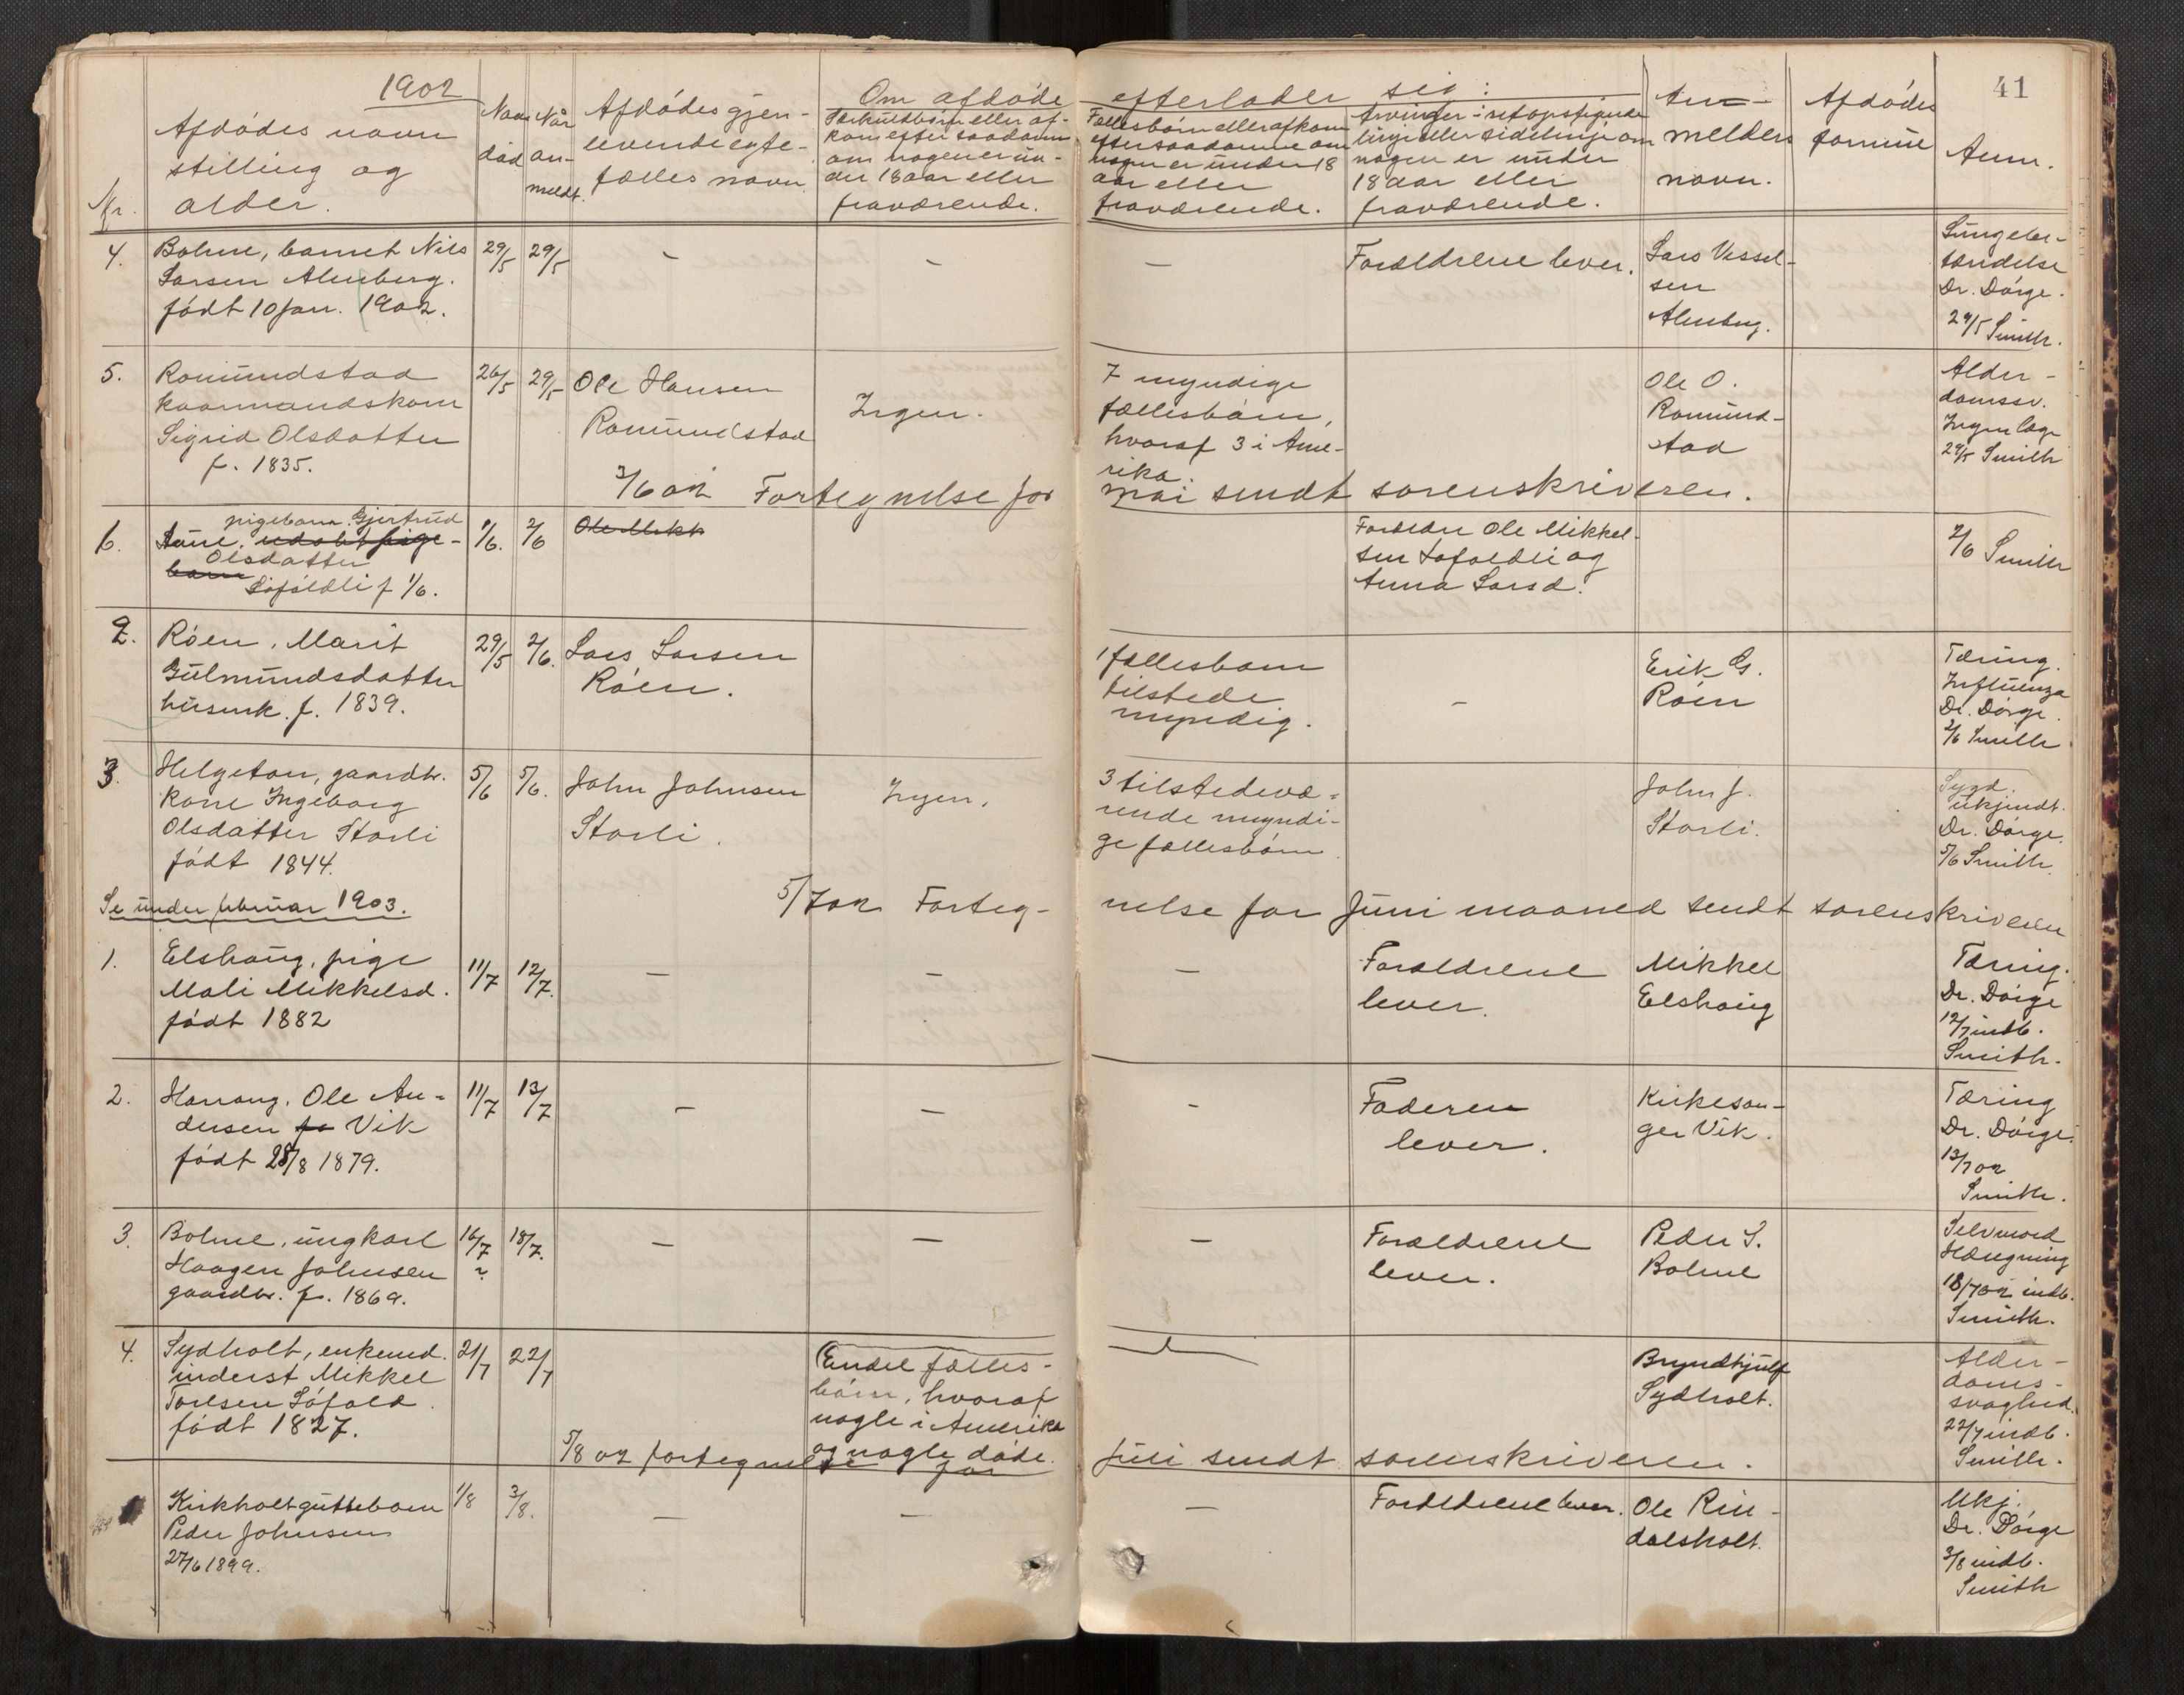 1902
41
Nr.
Afdødes navn
stilling og
alder.
Naar
død
Når
an-
meldt.
Afdødes gjen-
levende egte-
fælles navn.
Om afdøde
efterlader sig:
Særkuldbørn eller af-
kom efter saadanne
om nogen er un-
der 18 aar eller
fraværende.
Fællesbørn eller afkom
efter saadanne om
nogen er under 18
aar eller
fraværende.
Arvinger i retopstigende
linje eller sidelinje om
nogen er under
18 aar eller
fraværende.
An-
melders
navn.
Afdødes
formue
Anm.
4.
Bolme, barnet Nils
Larsen Almberg.
født 10 Jan. 1902.
29/5
29/5
-
-
-
Forældrene lever.
Lars Vessel-
sen
Almberg.
Lungebe-
tændelse
Dr. Dørge.
29/5 Smith.
5.
Romundstad
kaarmandskone
Sigrid Olsdatter
f. 1835.
26/5
29/5
Ole Hansen
Romundstad
Ingen.
7 myndige
fællesbørn,
hvoraf 3 i Ame-
rika.
Ole O.
Romund-
stad
Alder-
domssv.
Ingen læge
29/5 Smith
3/6 02 Fortegnelse for mai sendt sorenskriveren.
6.
pigebarn Gjertrud
Aune, udøbt pige-
Olsdatter
barn
Løfaldli f 1/6.
1/6.
2/6
Ole Mikk
Forældre Ole Mikkel-
sen Løfaldli og
Anna Larsd.
2/6 Smith
2.
Røen, Marit
Gulmundsdatter
husmk. f. 1839.
29/5
2/6.
Lars Larsen
Røen.
1 fællesbarn
tilstede
myndig.
-
Erik G.
Røen
Tæring.
Influenza
Dr. Dørge.
2/6 Smith.
3.
Helgeton, gaardbr.
kone Ingeborg
Olsdatter Storli
født 1844.
5/6
5/6.
John Johnsen
Storli.
Ingen.
3 tilstedevæ-
rende myndi-
ge fællesbørn
John J.
Storli.
Sygd.
ukjendt.
Dr. Dørge.
5/6 Smith.
Se under februar 1903.
5/7 02 Forteg-nelse for Juni maaned sendt sorenskriveren
1.
Elshaug, pige
Mali Mikkelsd.
født 1882
11/7
12/7.
-
-
-
Forældrene
lever.
Mikkel
Elshaug
Tæring.
Dr. Dørge
12/7 indb.
Smith.
2.
Harang. Ole An-
dersen fo Vik
født 28/8 1879.
11/7
13/7
-
-
-
Faderen
lever.
Kirkesan-
ger Vik.
Tæring
Dr. Dørge.
13/7 02
Smith.
3.
Bolme, ungkarl
Haagen Johnsen
gaardbr. f. 1869.
16/7
?
18/7.
-
-
-
Forældrene
lever.
Peder S.
Bolme
Selvmord
Hængning
18/7 02 indb.
Smith.
4.
Sydholt, enkemd.
inderst Mikkel
Torsen Løfald.
født 1827.
21/7
22/7
Endel fælles-
børn, hvoraf
nogle i Amerika
og nogle døde.
Bryndhjulf
Sydholt.
Alder-
doms-
svaghed.
22/7 indb.
Smith.
5/8 02 fortegnelse for Juli sendt sorenskriveren.
Kirkholt guttebarn
Peder Johnsen
27/6 1899.
1/8
3/8.
-
-
-
Forældrene lever.
Ole Rin-
dalsholt.
Ukj.
Dr. Dørge
3/8 indb.
Smith